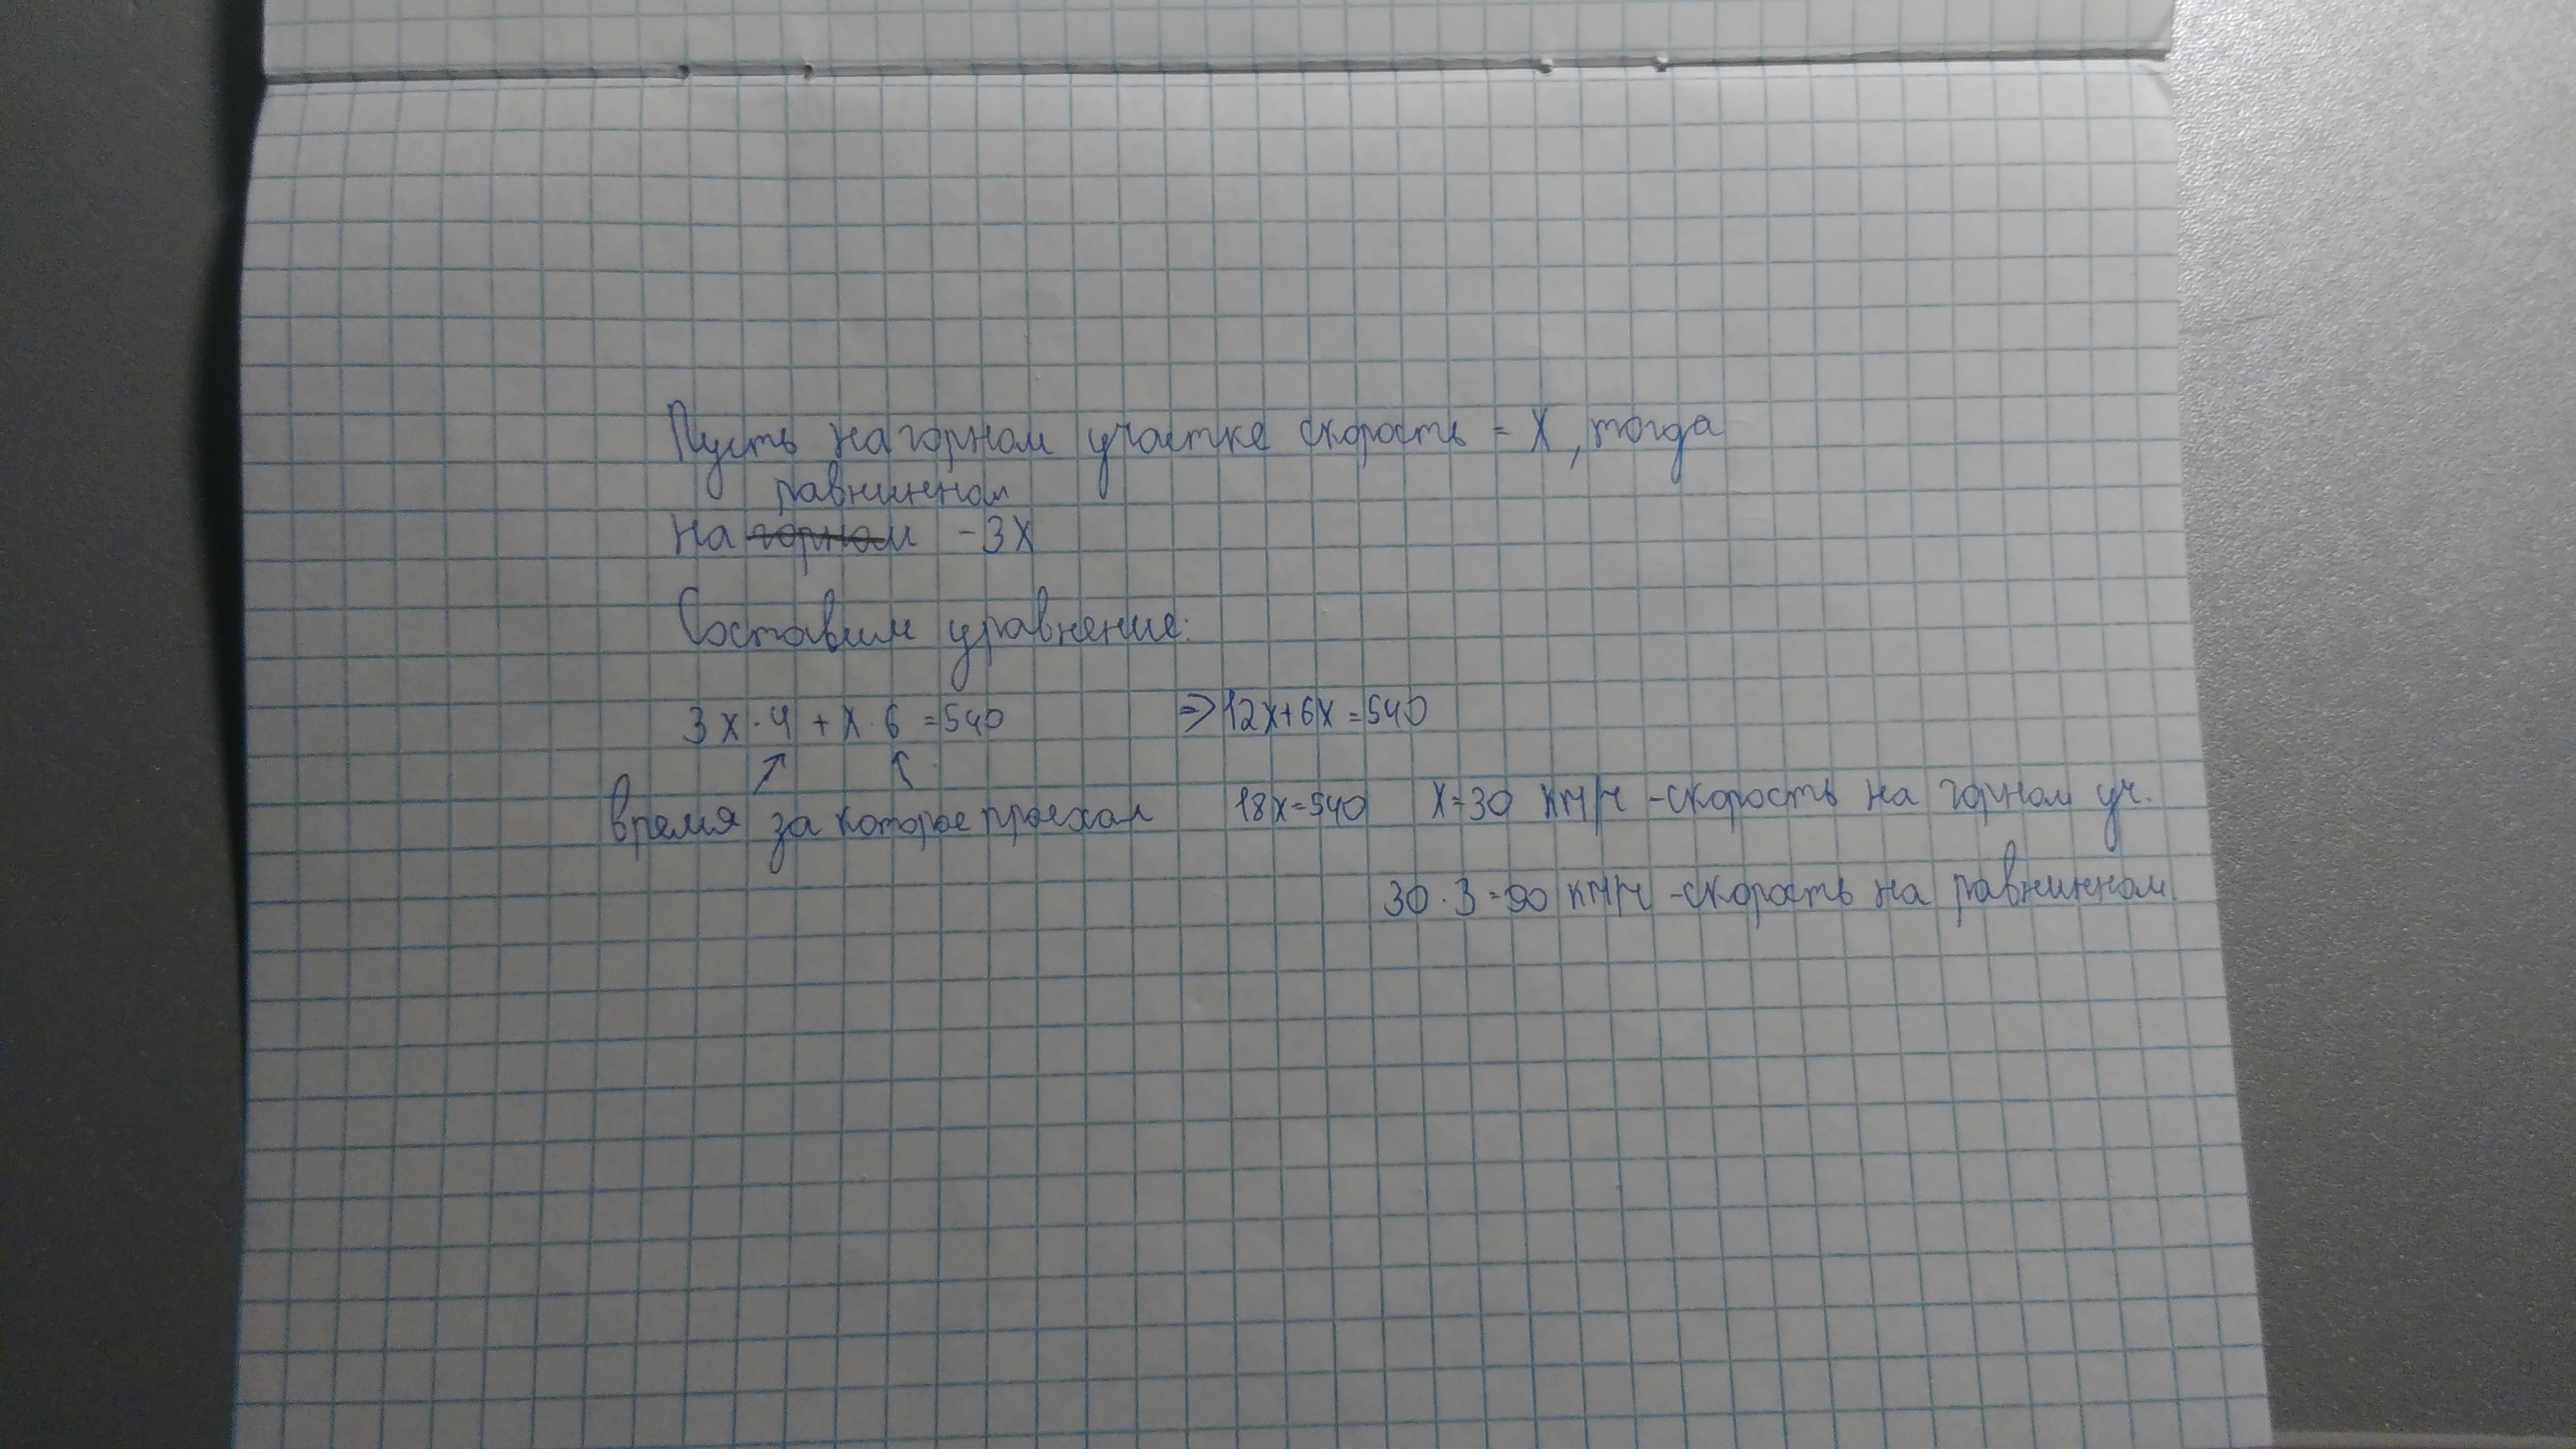 Пусть на горном участке скорость = X, тогда
равнинном
на горном - 3X
Составим уравнение:
3X·4 + X·6 = 540 ⇒ 12X+6X=540
↗ ↖
время за которое проехал 18X=540 X=30 км/ч - скорость на горном уч.
30·3=90 км/ч - скорость на равнинном